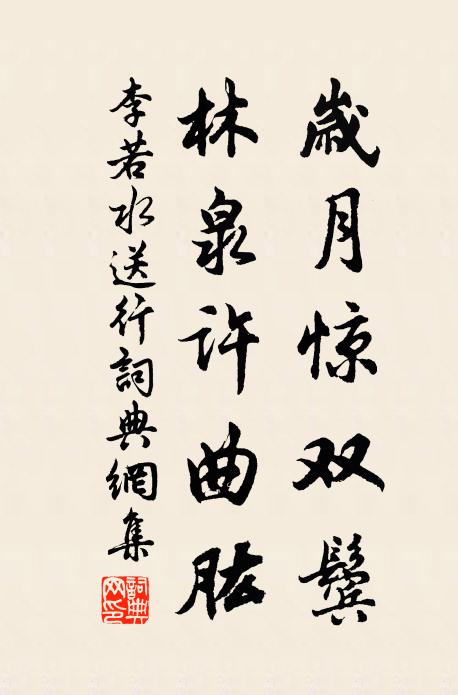 歳月惊双鬓
林泉许曲肱
李若水送行詞典網集
詞典网印